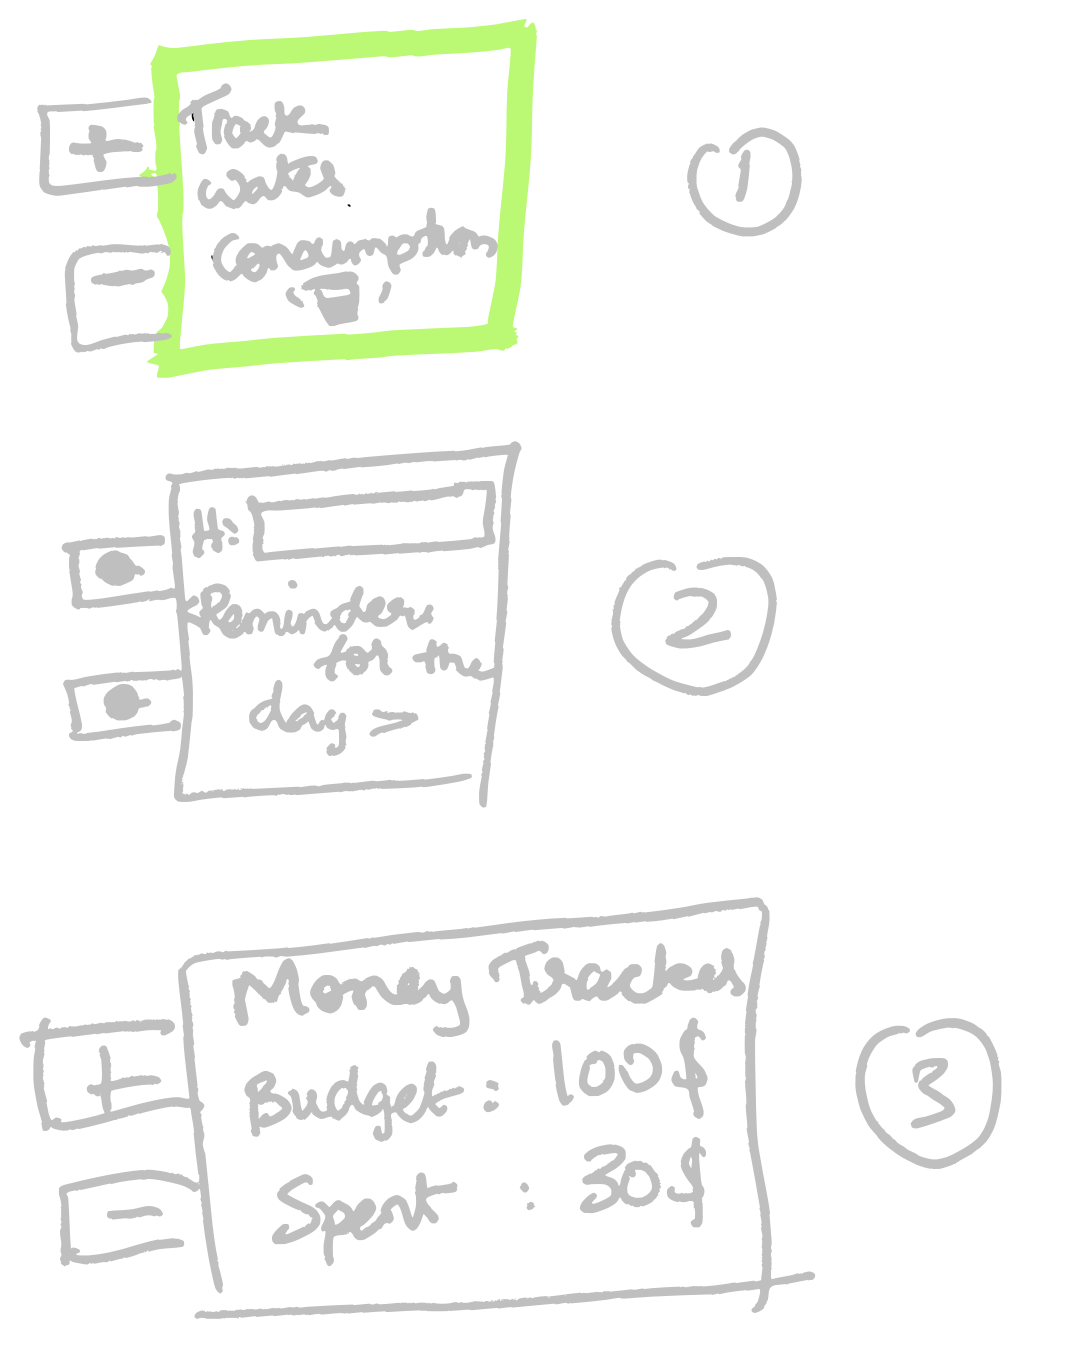 +
Track
water
Consumption
-
1
Hi
<Reminders
for the
day >
2
Money Tracker
+
Budget : 100$
-
Spent : 30$
3